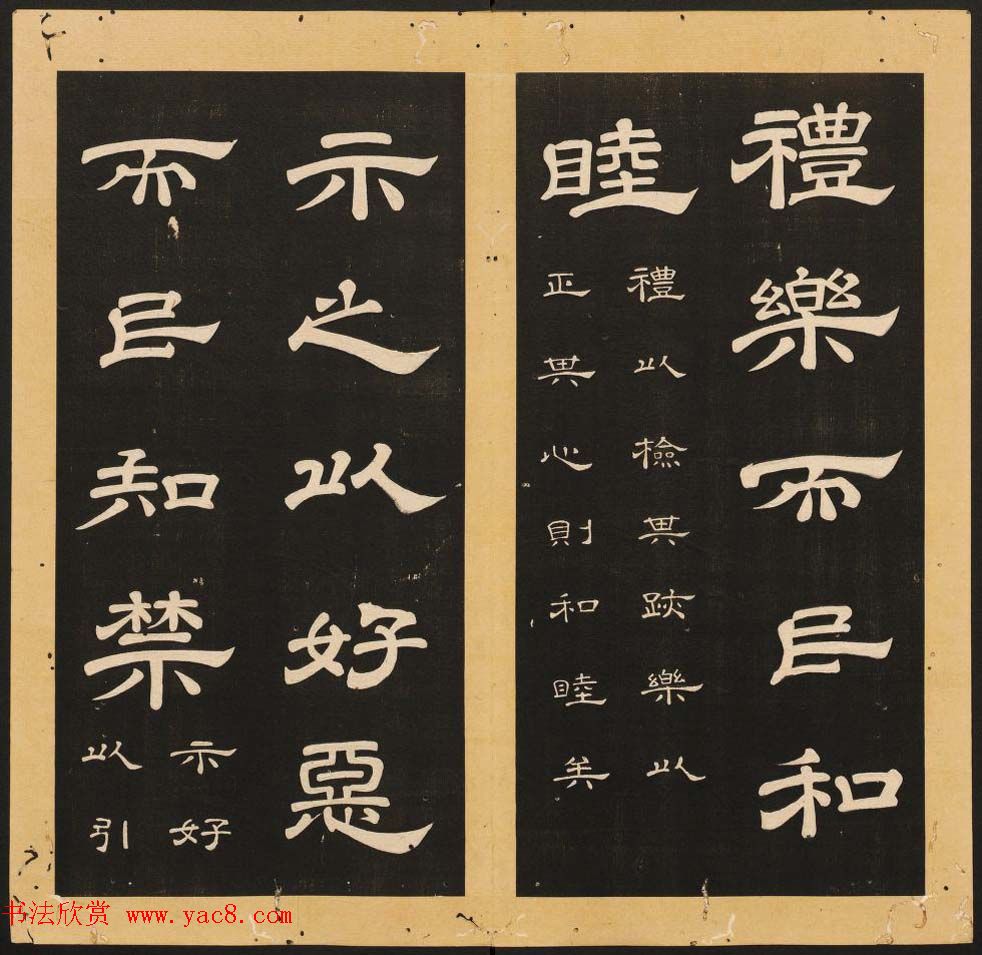 禮樂而民和
睦
禮以檢其跡樂以
正其心則和睦矣
示之以好惡
而民知禁
示好
以引
书法欣赏 www.yac8.com